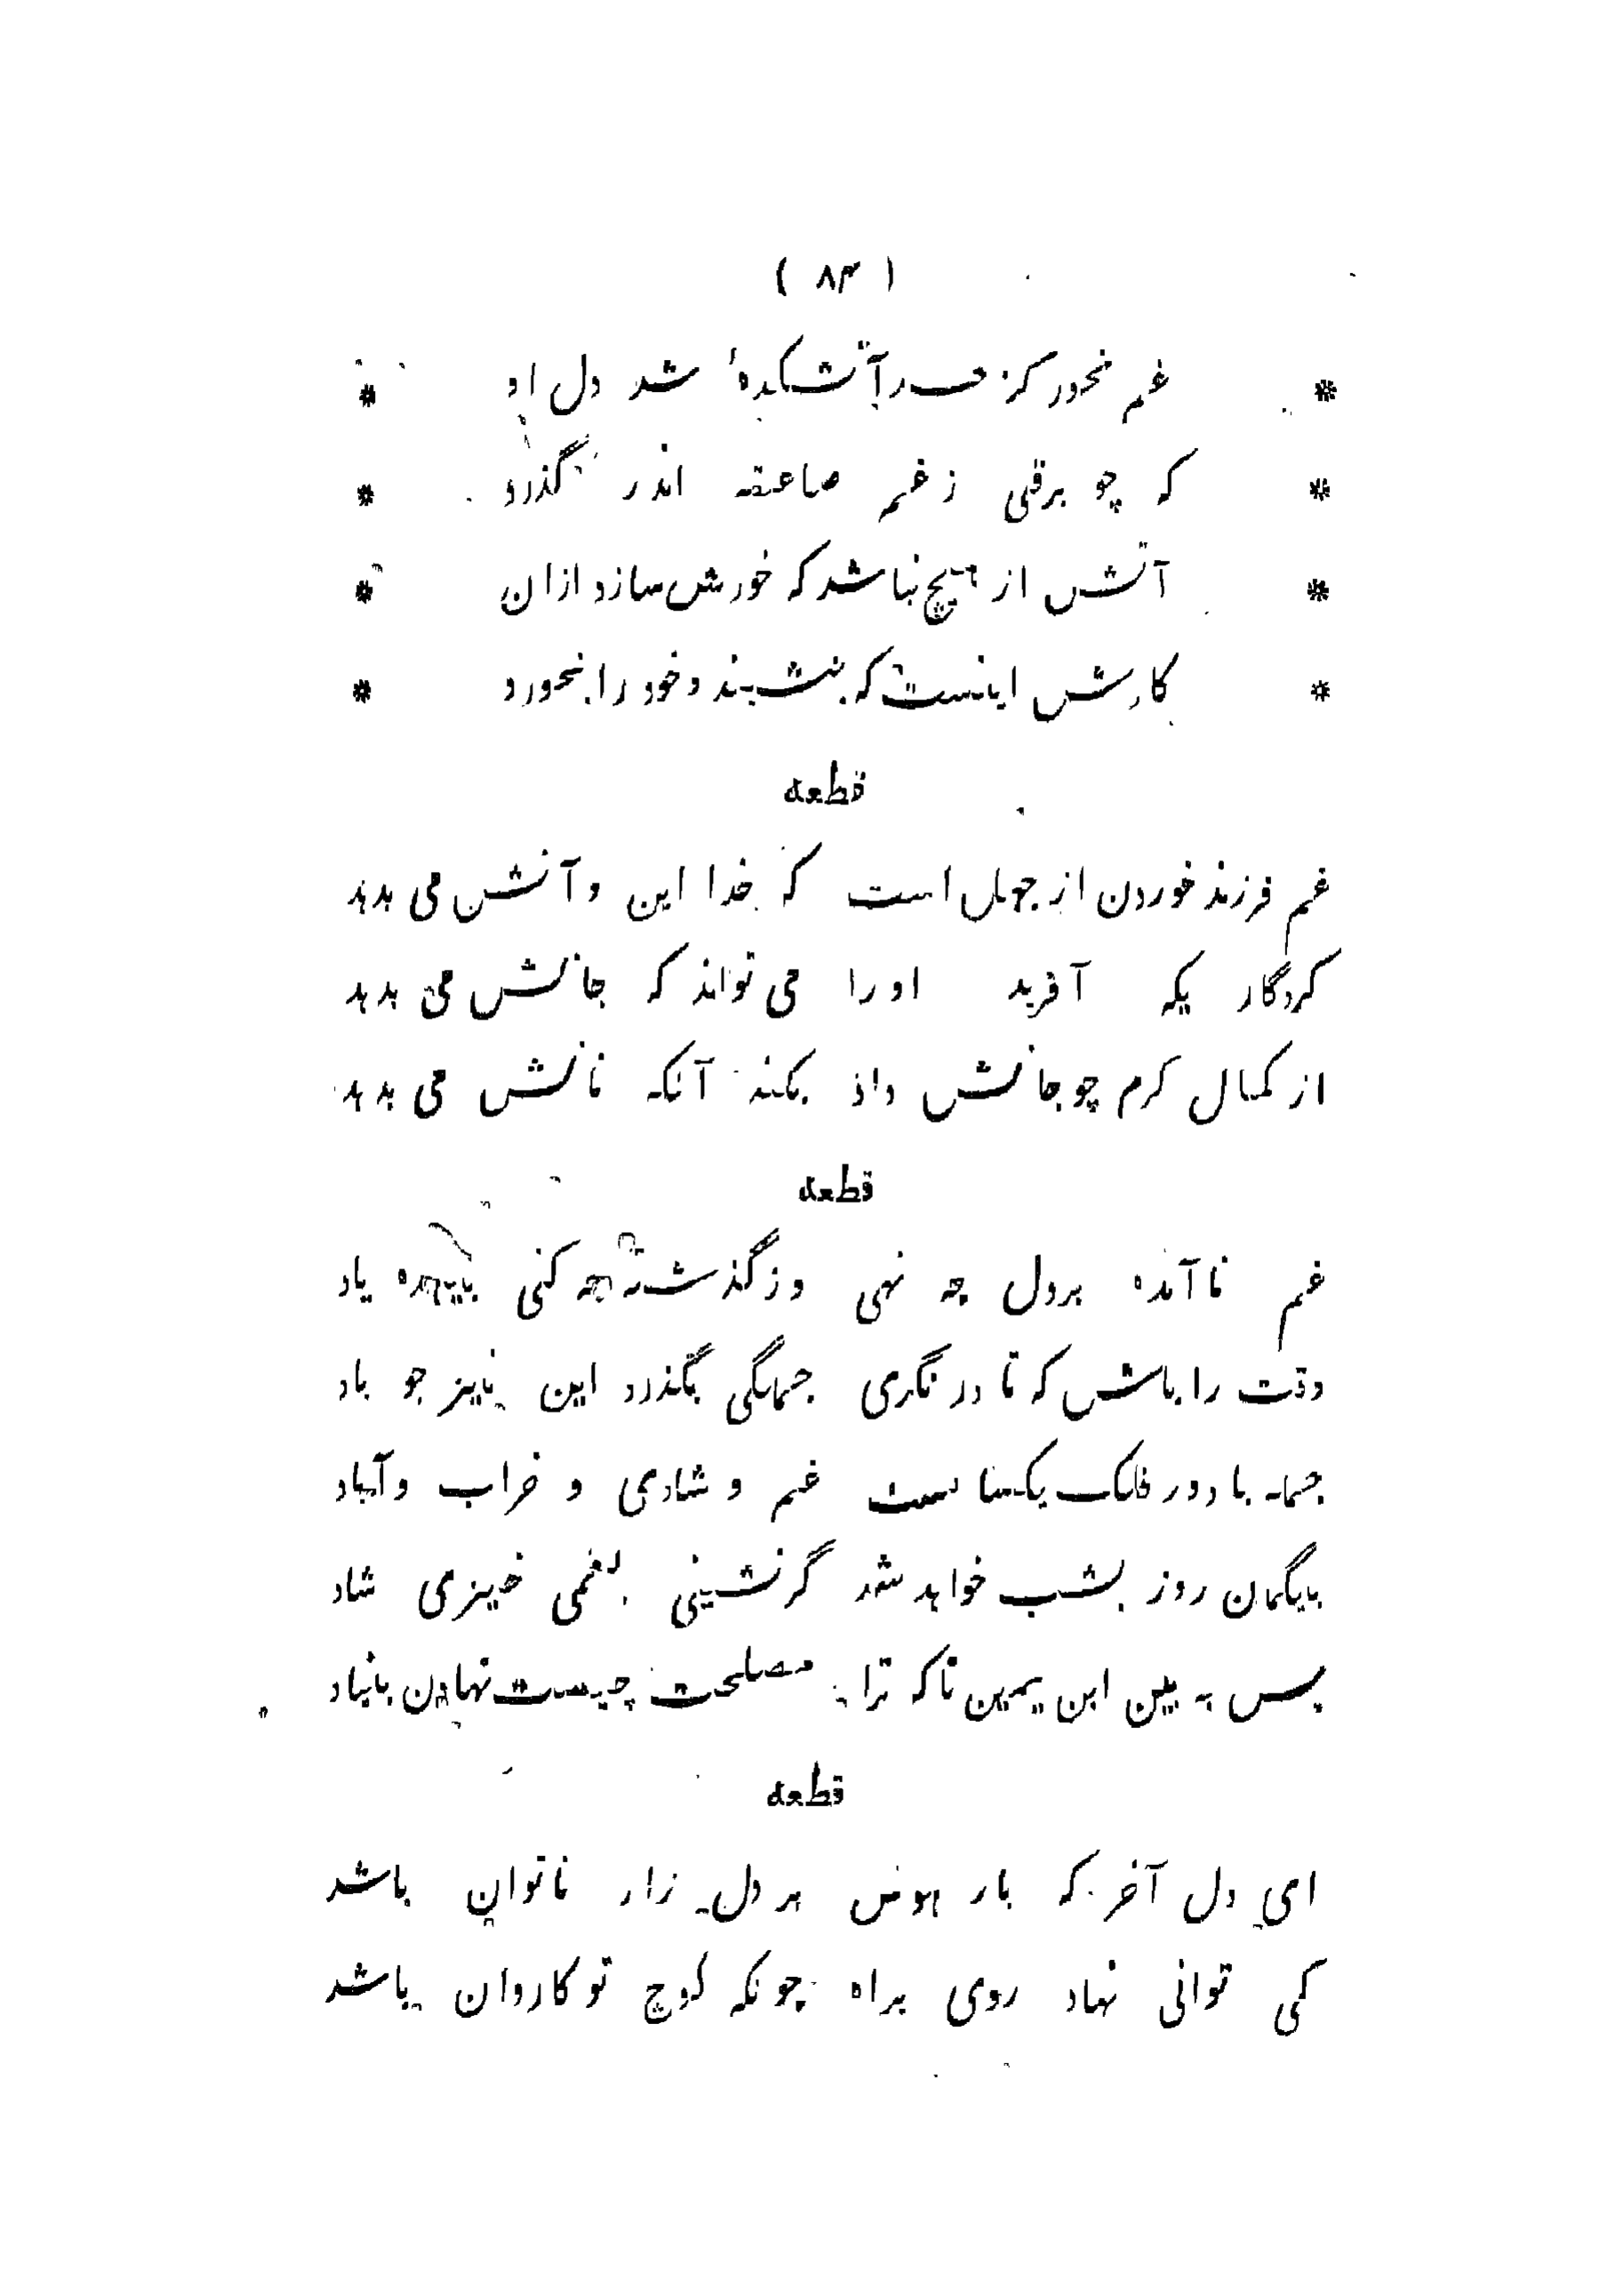 ( ۸۴ )
* غم مخور کز حسد آتشکدهٔ شد دل او *
* که چو برقی ز غم صاعقه اندر گذرد *
* آتش از هیچ نباشد که خورش سازد ازان *
* کارش اینست که بنشیند و خود را بخورد *
قطعه
غم فرزند خوردن از جهل است که خدا این و آنش می بدهد
کردگار یکه آفرید او را می تواند که جانش می بدهد
از کمال کرم چو جانش داد بکند آنکه نانش می بدهد
قطعه
غم ناآمده بر دل چه نهی وز گذشته چه کنی بیهده یاد
وقت را باش که تا در نگری جملگی بگذرد این نیز چو باد
جمله با دور فلک یکسانست غم و شادی و خراب و آباد
بیگمان روز بشب خواهد شد گر نشینی بغمی خیزی شاد
پس به بین ابن یمین تا که ترا مصلحت چیست نهادن بنیاد
قطعه
ای دل آخر که بار هوس بر دل زار ناتوان باشد
کی توانی نهاد روی براه چونکه کوچ تو کاروان باشد